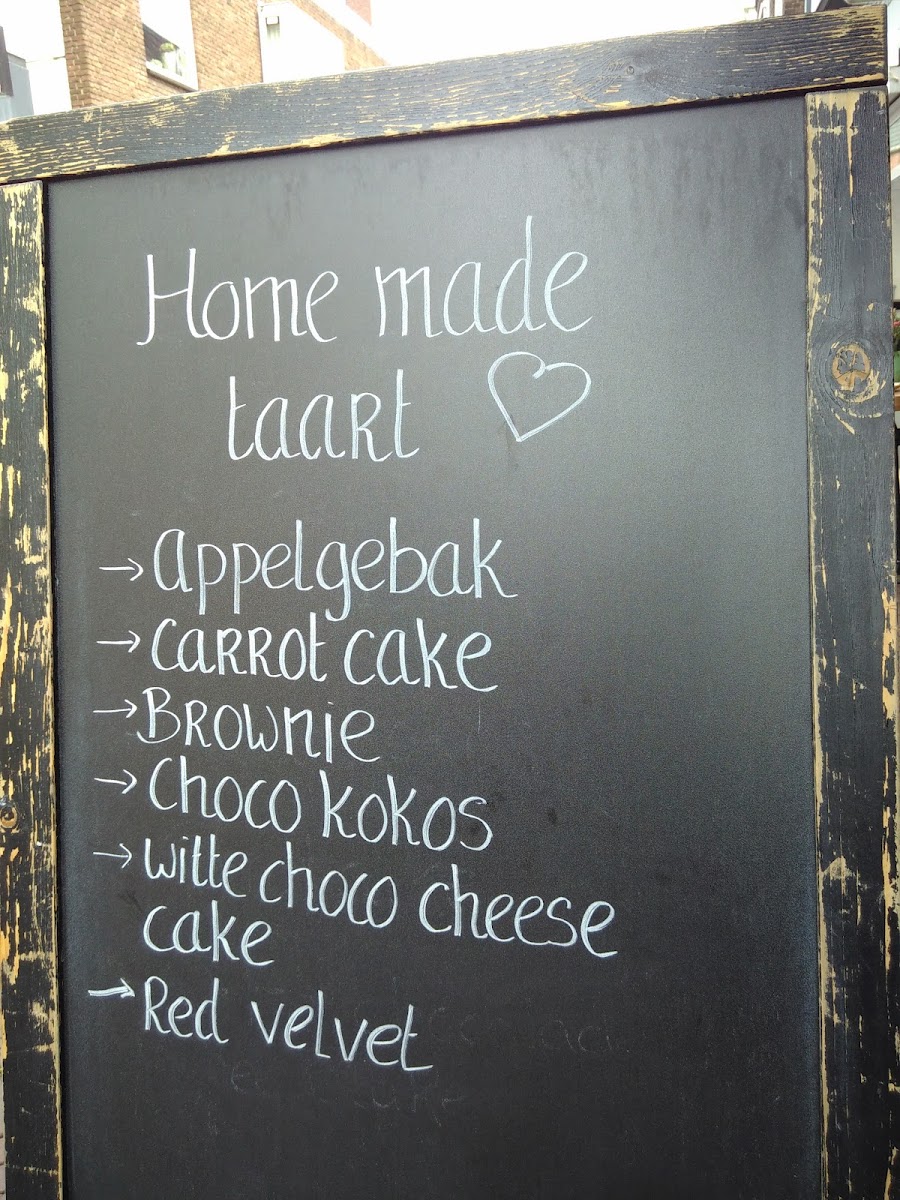 Home made
taart
→ Appelgebak
→ Carrot cake
→ Brownie
→ Choco kokos
→ witte choco cheese
cake
→ Red velvet